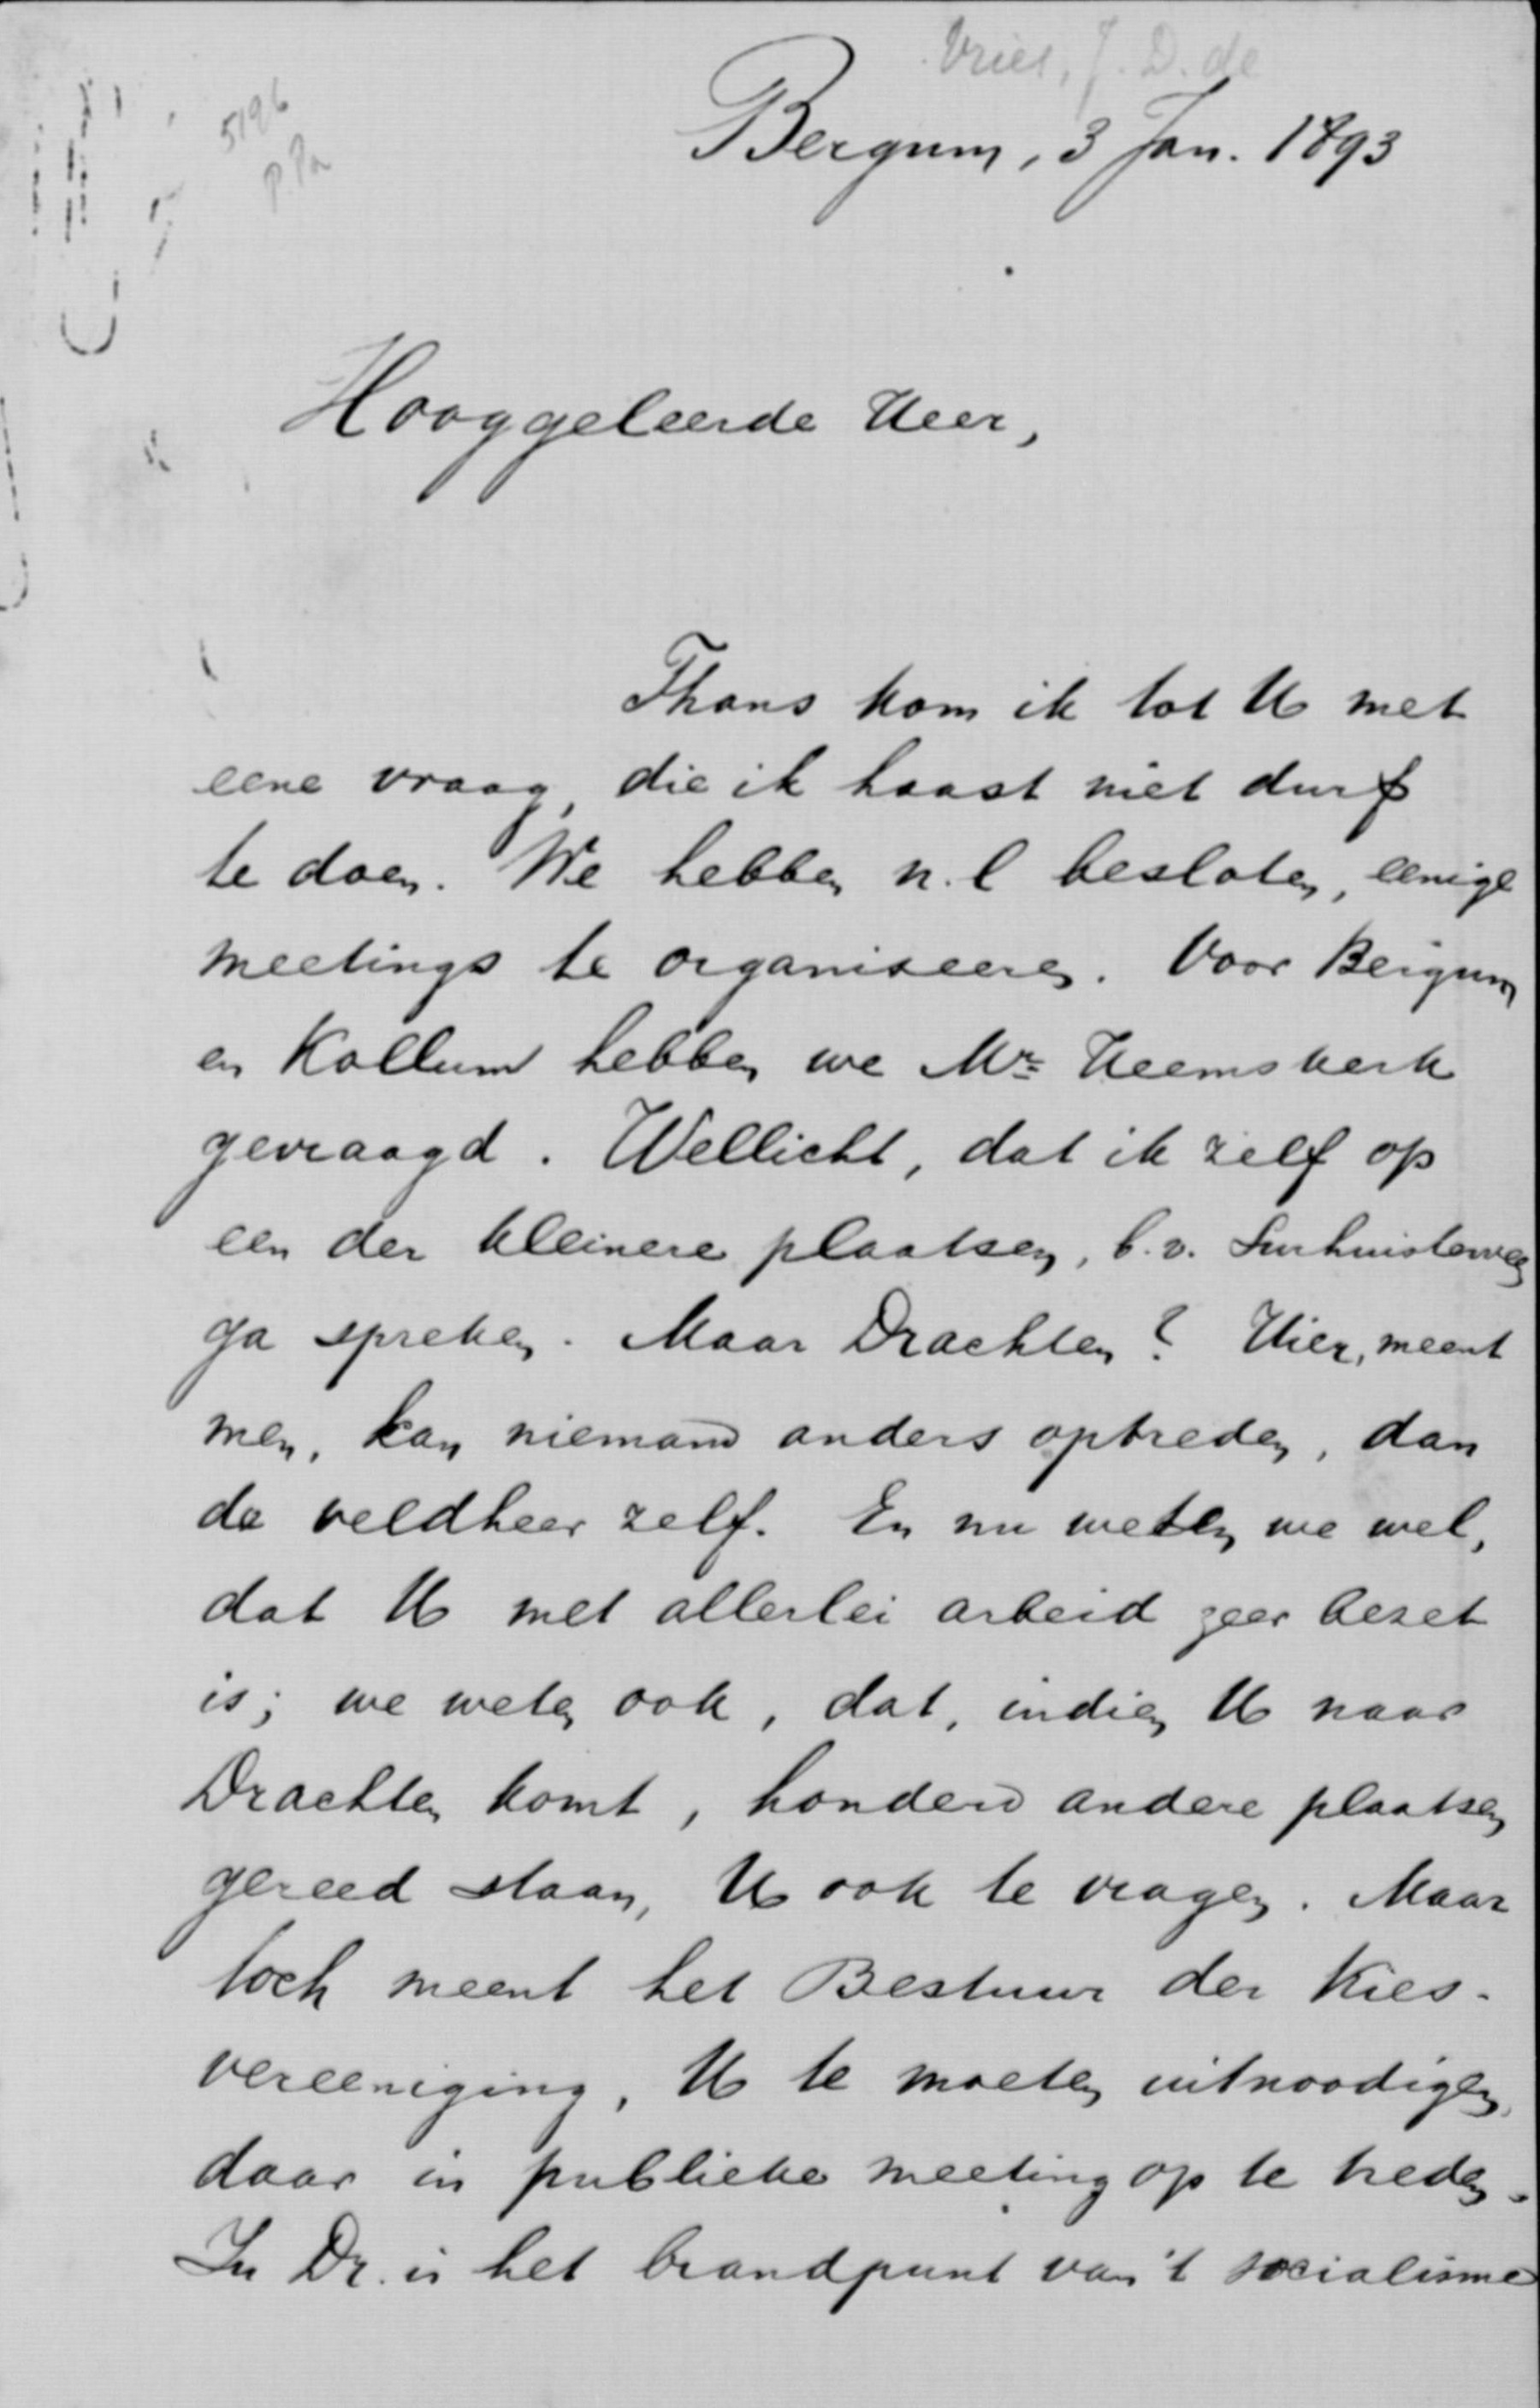 Vries, J. D. de
5196
Bergum, 3 Jan. 1893
Hooggeleerde Heer,
Thans kom ik tot U met
eene vraag, die ik haast niet durf
te doen. We hebben n.l besloten, eenige
meetings te organiseeren. Voor Bergum
en Kollum hebben we Mr Heemskerk
gevraagd. Wellicht, dat ik zelf op
een der kleinere plaatsen, b.v. Surhuisterveen
ga spreken. Maar Drachten? Hier, meent
men, kan niemand anders optreden, dan
de veldheer zelf. En nu weten we wel,
dat U met allerlei arbeid zeer bezet
is; we weten ook, dat, indien U naar
Drachten komt, honderd andere plaatsen
gereed staan, U ook te vragen. Maar
toch meent het Bestuur der Kies-
vereeniging, U te moeten uitnoodigen,
daar in publieke meeting op te treden.
In Dr. is het brandpunt van 't socialisme